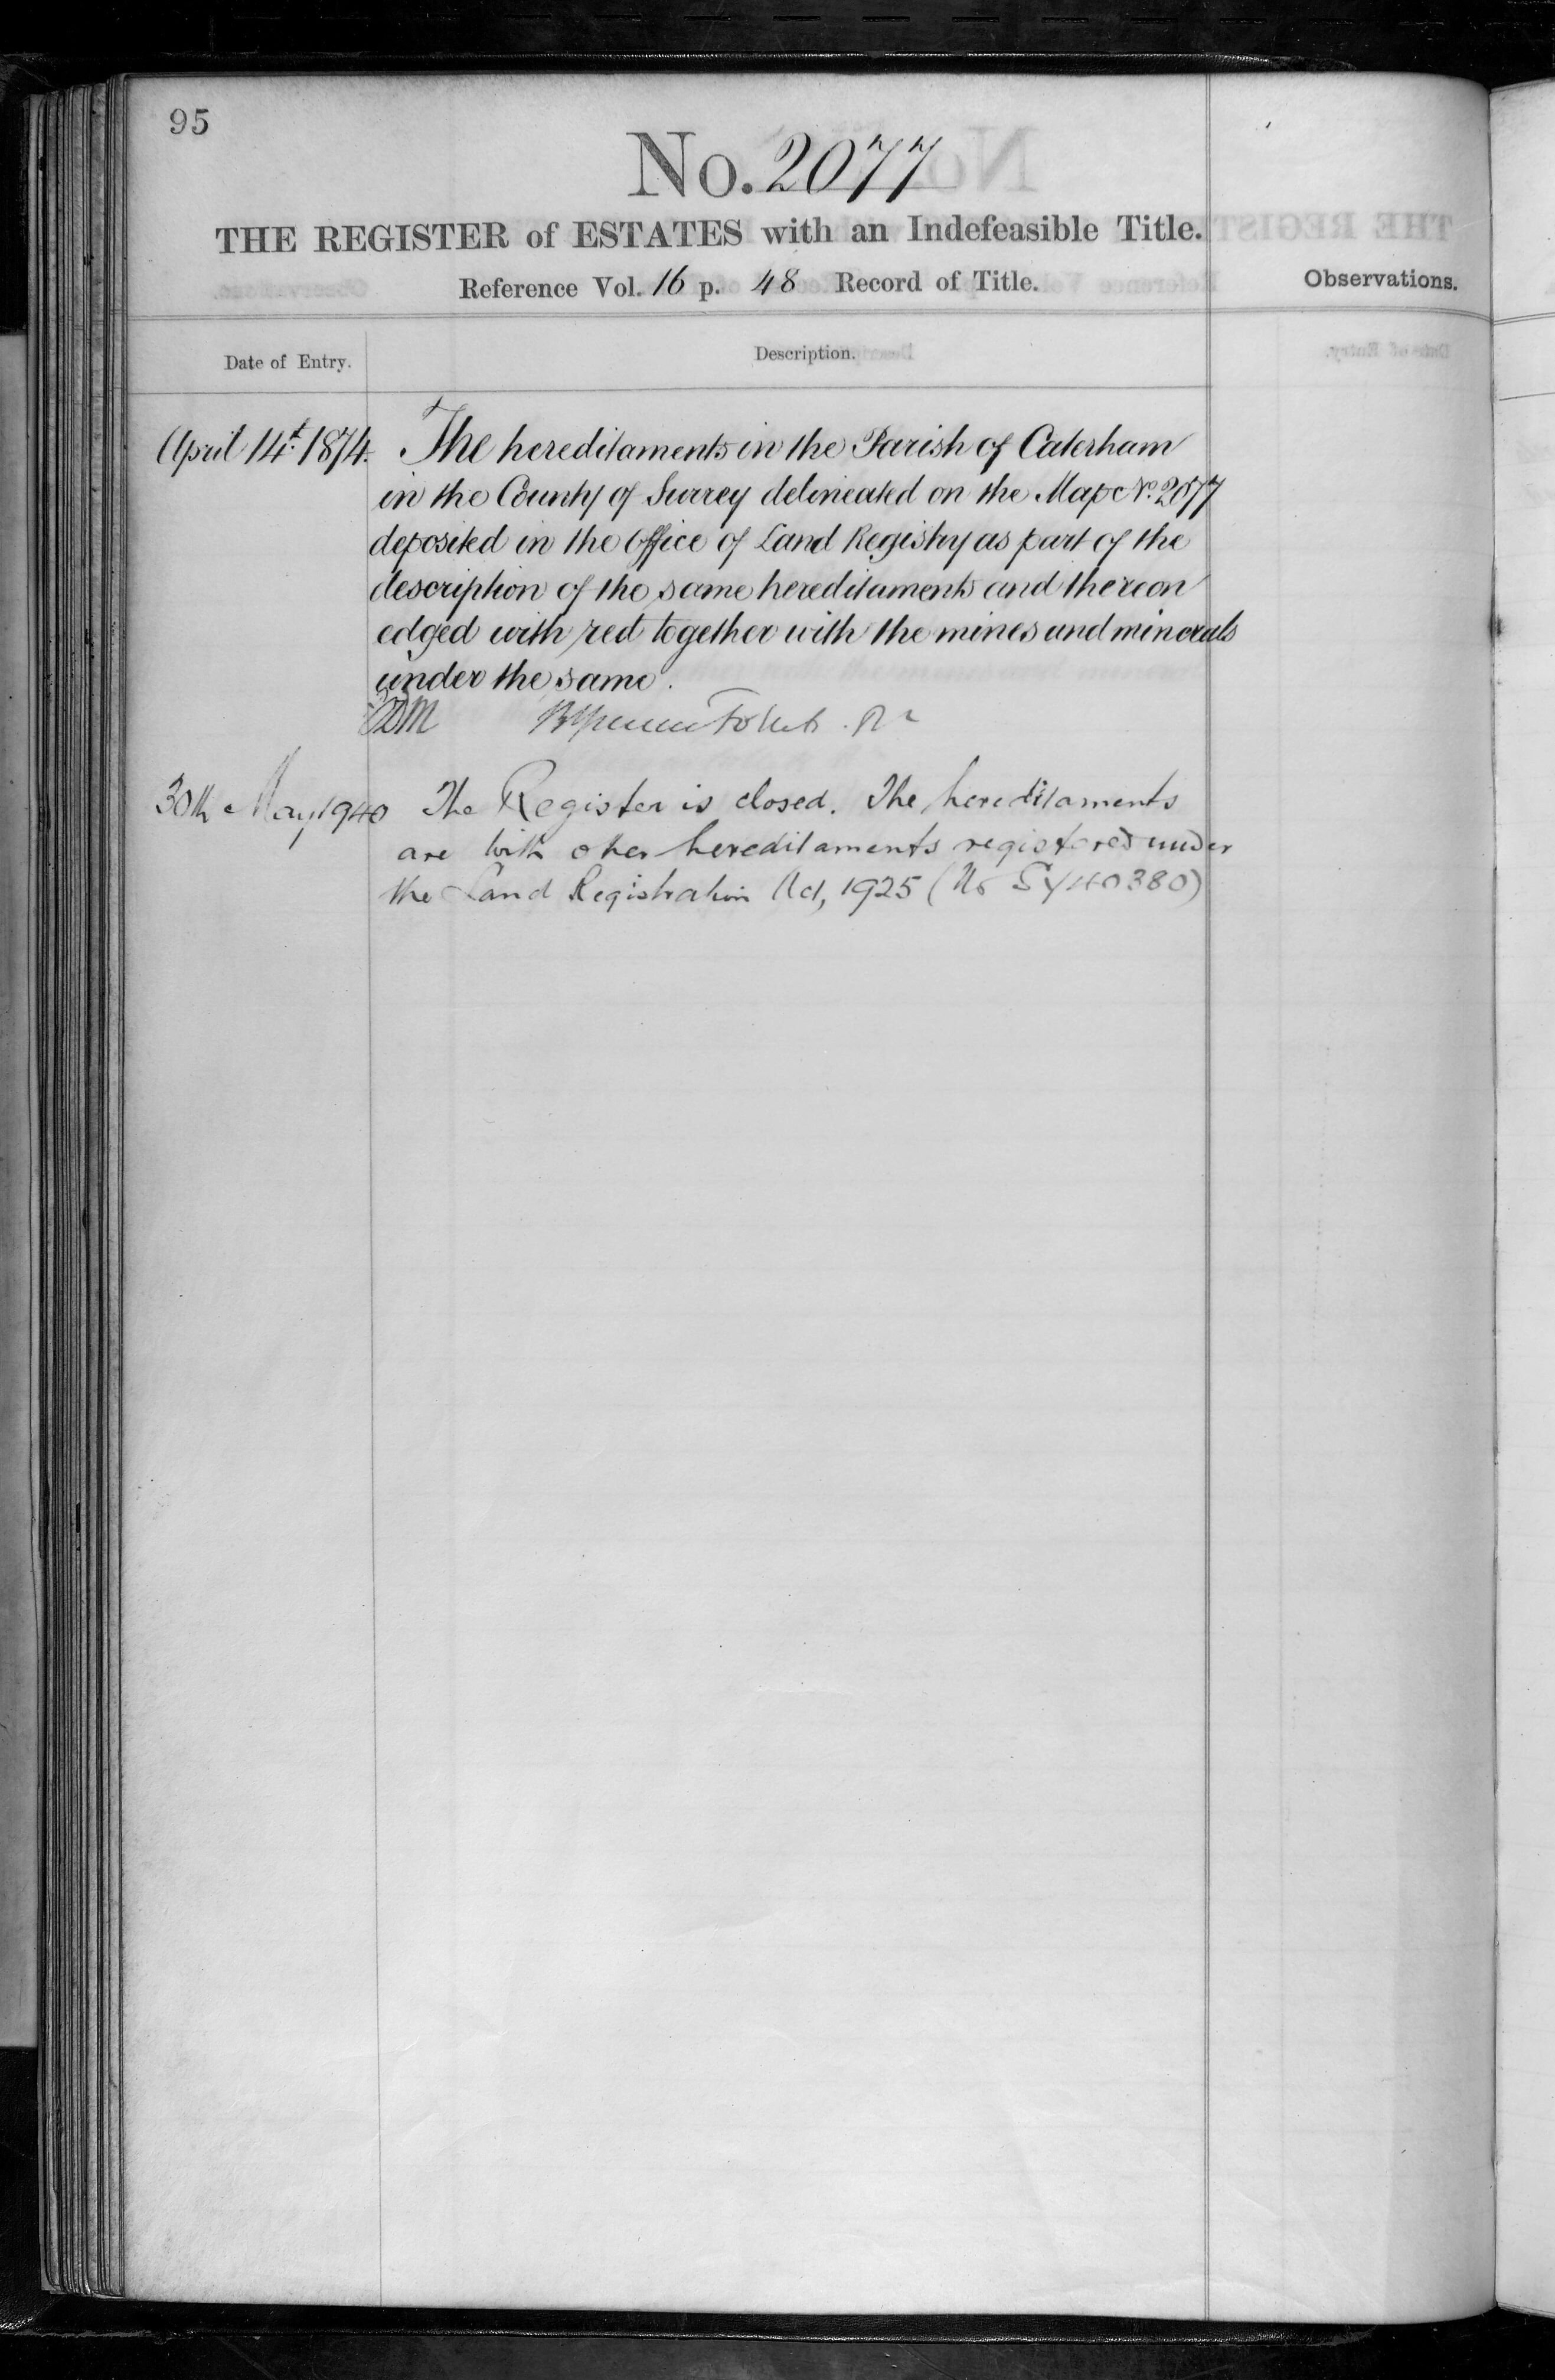 95
No. 2077
THE REGISTER of ESTATES with an Indefeasible Title.
Reference Vol. 16 p. 48 Record of Title.
Observations.
Date of Entry.
Description.
April 14t. 1874. The hereditaments in the Parish of Caterham
in the County of Surrey delineated on the Map No. 2077
deposited in the Office of Land Registry as part of the
description of the same hereditaments and thereon
edged with red together with the mines and minerals
under the same.
30th May 1940 The Register is closed. The hereditaments
are with other hereditaments registered under
the Land Registration Act, 1925 (No SY40380)